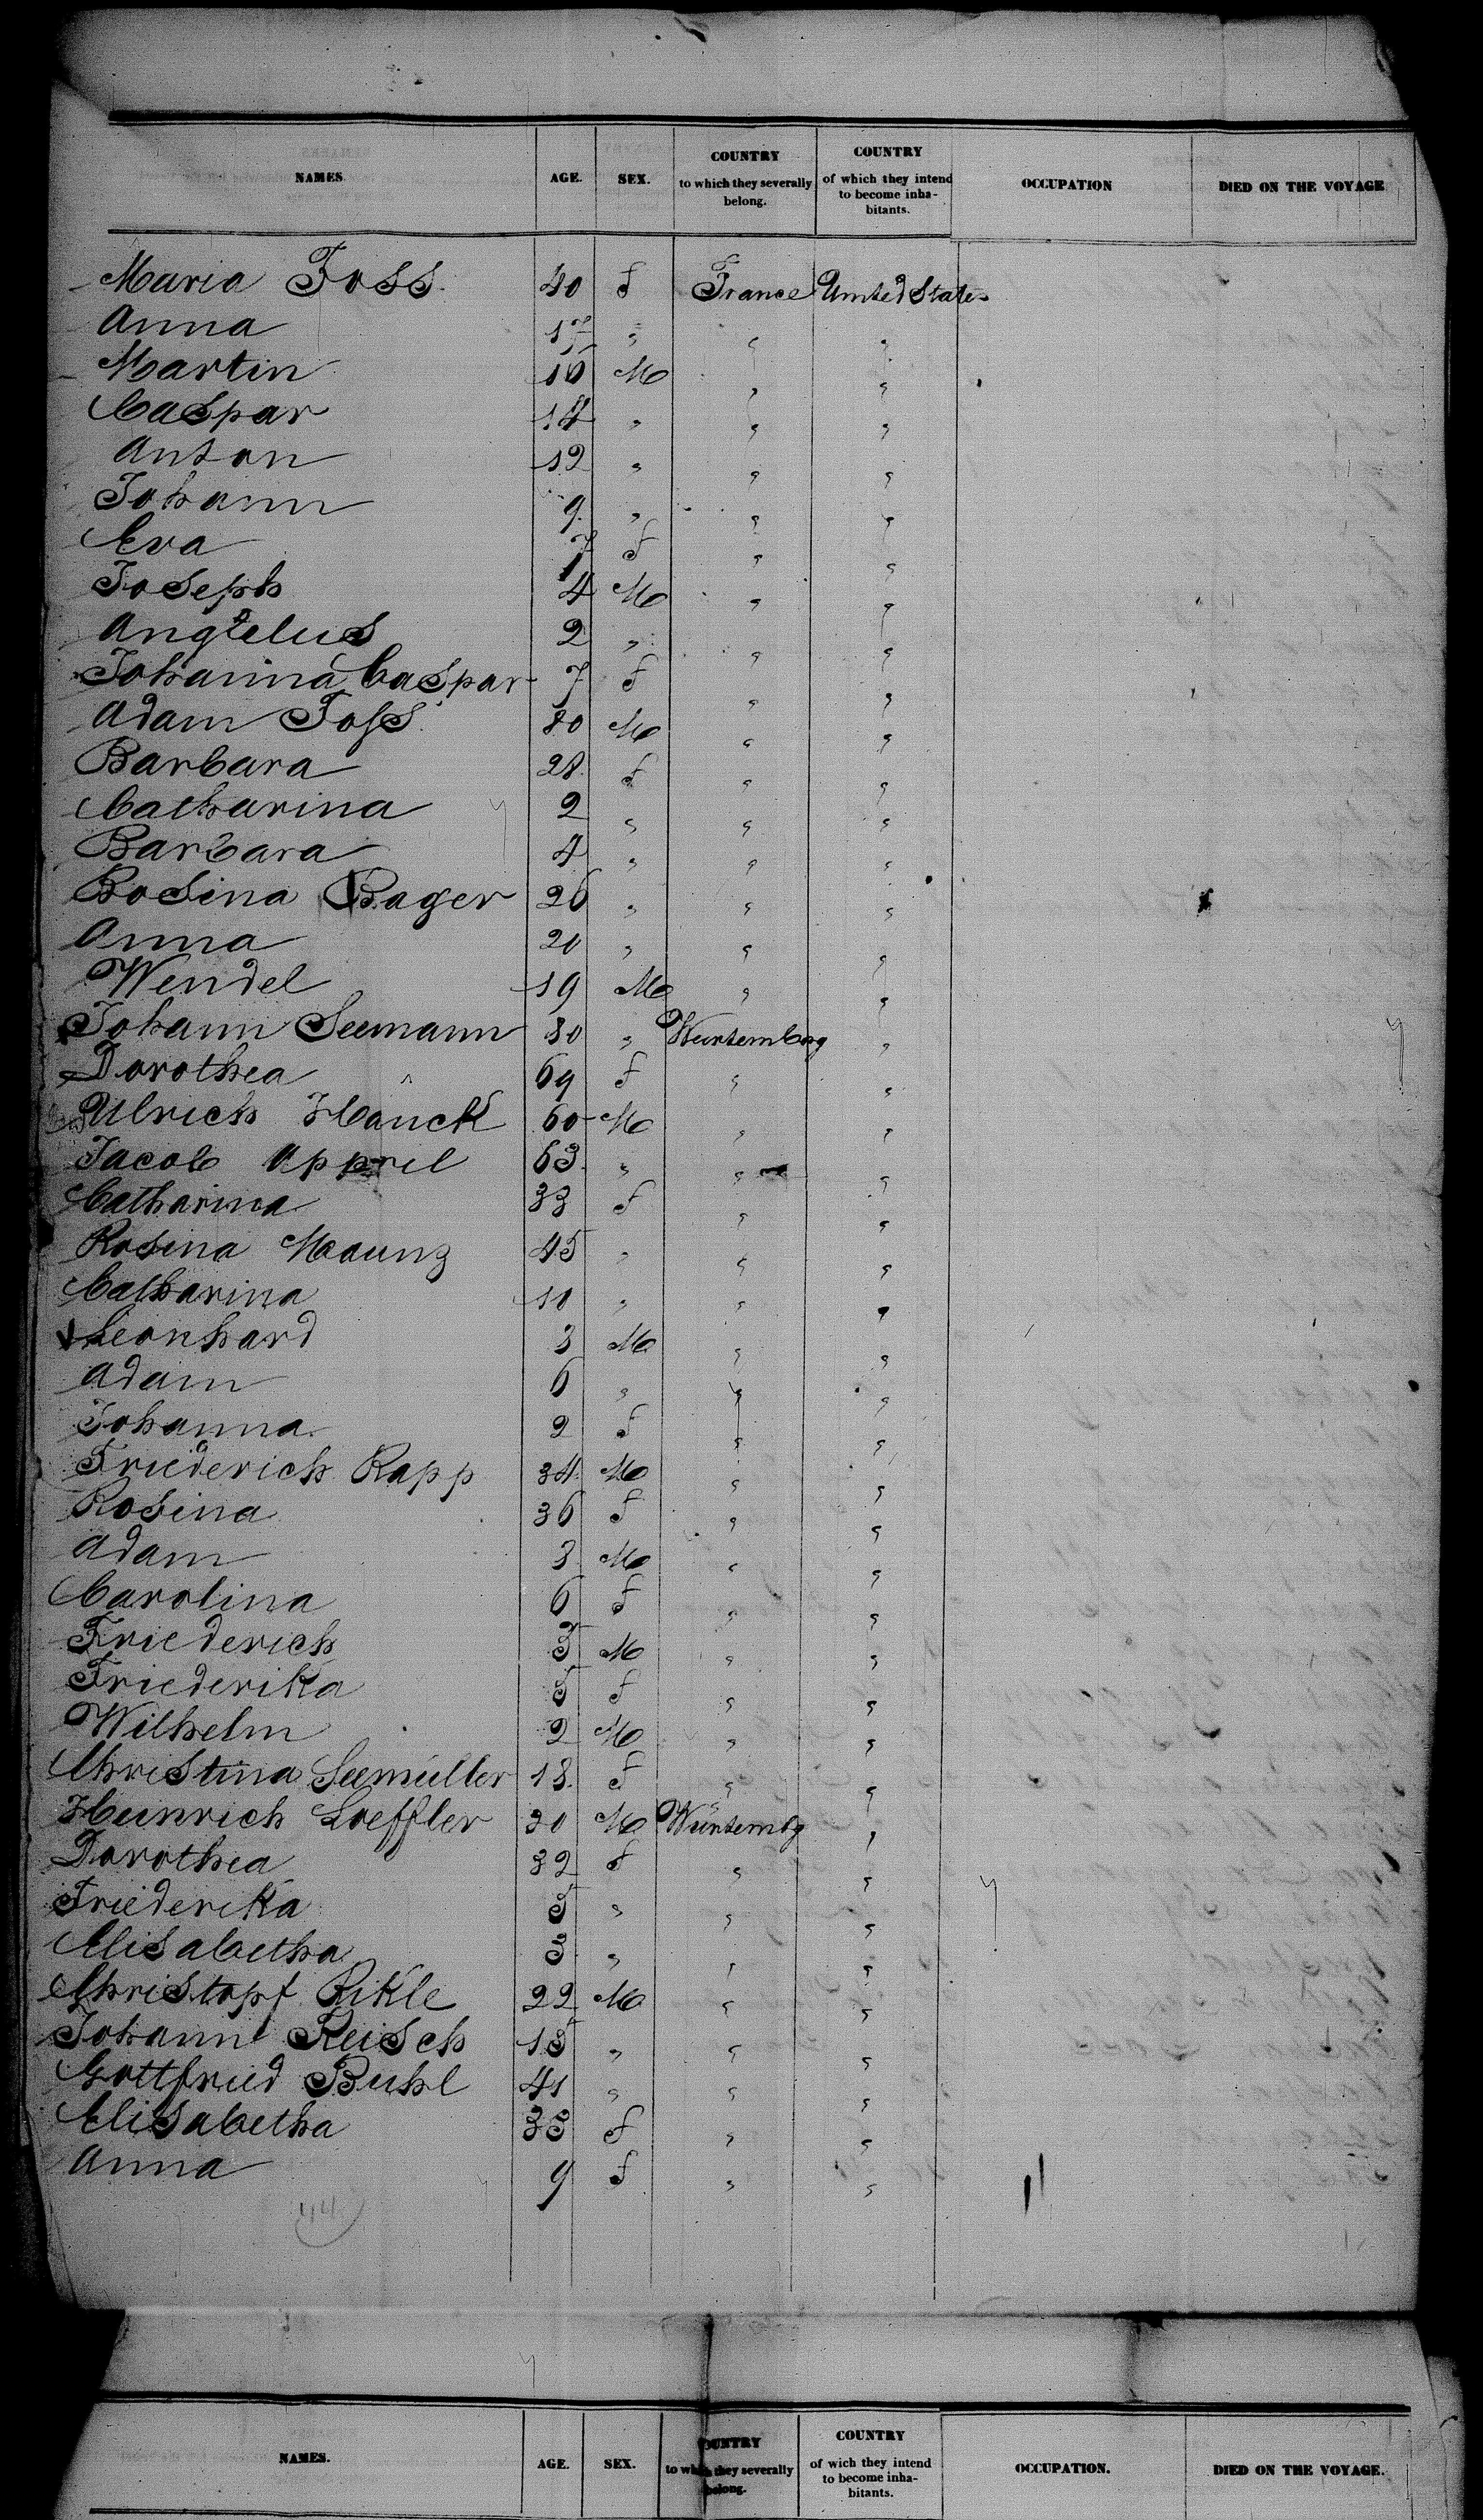 NAMES. AGE. SEX. COUNTRY to which they severally belong. COUNTRY of which they intend to become inhabitants. OCCUPATION DIED ON THE VOYAGE
Maria Foss 40 f France United States
Anna 17 " " "
Martin 16 M " "
Caspar 14 " " "
Anton 12 " " "
Johann 9 " " "
Eva 7 f " "
Joseph 4 M " "
Angelus 2 " " "
Johanna Caspar 7 f " "
Adam Foss 30 M " "
Barbara 28 f " "
Catharina 2 " " "
Barbara 4 " " "
Rosina Bager 26 " " "
Anna 20 " " "
Wendel 19 M " "
Johann Seemann 30 " Wurtemberg "
Dorothea 69 f " "
Ulrich Hauck 60 M " "
Jacob Appril 63 " " "
Catharina 33 f " "
Rosina Maunz 45 " " "
Catharina 10 " " "
Leonhard 3 M " "
Adam 6 " " "
Johanna 2 f " "
Friederich Rapp 34 M " "
Rosina 36 f " "
Adam 3 M " "
Carolina 6 f " "
Friederich 5 M " "
Friederika 5 f " "
Wilhelm 2 M " "
Christina Seemüller 18 f " "
Heinrich Loeffler 30 M Würtembg "
Dorothea 32 f " "
Friederika 5 " " "
Elisabetha 3 " " "
Christopf Rikle 22 M " "
Johann Reisch 15 " " "
Gottfried Buhl 41 " " "
Elisabetha 35 f " "
Anna 9 f " "
44
NAMES. AGE. SEX. COUNTRY to which they severally belong. COUNTRY of wich they intend to become inhabitants. OCCUPATION. DIED ON THE VOYAGE.